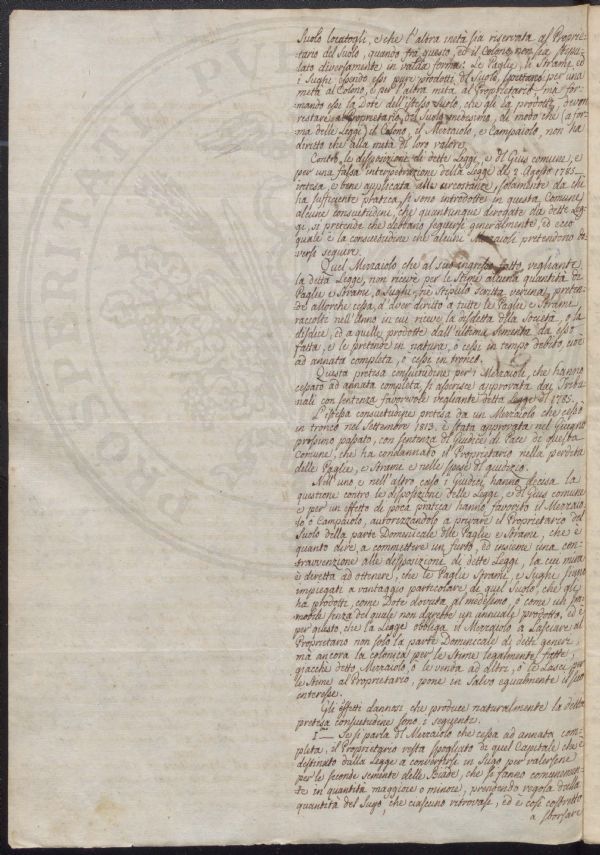 Suolo locatogli, e che l'altra metà sia riservata al Proprie-
tario del Suolo, quando frà questo, ed il Colono non sia stipu-
lato diversamente in valida forma: Le Paglie, le Strame, ed
i Sughi essendo essi pure prodotti del Suolo, spettano per una
metà al Colono, e per l'altra metà al Proprietario, ma for-
mando essi la Dote dell'istesso Suolo, che gli hà prodotti, devon
restare al Proprietario del Suolo medesimo, di modo che (a for-
ma delle Leggi) il Colono, il Mezzaiolo, e Campaiolo, non ha
diritto che alla metà di loro valore.
Contro le disposizioni di dette Leggi, e di Gius comune, e
per una falsa interpetrazione della Legge de' 2 Agosto 1785.
intesa, e bene applicata alle circostanze, solamente da chi
ha sufficiente pratica, si sono introdotte in questa Comune
alcune consuetudini, che quantunque derogate da dette Leg-
gi, si pretende che debbano seguirsi generalmente, ed ecco
quale è la consuetudine che alcuni Mezzaioli pretendono do-
versi seguire.
Quel Mezzaiolo che al suo ingresso fatto, vegliante
la detta Legge, non riceve per le Stime alcuna quantità di
Paglie e Strame, o Sughi, nè stipulò scritta veruna, preten-
de allorchè cessa, d'aver diritto a tutte le Paglie e Strame
raccolte nell'Anno in cui riceve la disdetta della Società, o la
disdice, ed a quelle prodotte dall'ultima sementa da esso
fatta, e le pretende in natura, o cessi in tempo debito, cioè
ad annata completa, o cessi in tronco.
Questa pretesa consuetudine per i Mezzaioli, che hanno
cessato ad annata completa, si asserisce approvata dai Tribu-
nali con sentenza favorevole vegliante detta Legge del 1785.
L'istessa consuetudine pretesa da un Mezzaiolo che cessò
in tronco nel Settembre 1813. è stata approvata nel Giugno
prossimo passato, con sentenza del Giudice di Pace di questa
Comune, che ha condannato il Proprietario nella perdita
delle Paglie, e Strame e nelle spese di giudizio.
Nell'uno e nell'altro caso i Giudici, hanno decisa la
questione contro le disposizione delle Legge, e di Gius comune
e per un effetto di poca pratica hanno favorito il Mezzaio-
lo o Campaiolo, autorizzandolo a privare il Proprietario del
Suolo della parte Dominicale delle Paglie e Strame, che è
quanto dire, a commettere un furto, ed insieme una con-
travvenzione alle disposizioni di dette Leggi, la cui mira
è diretta ad ottenere, che le Paglie Strami, e Sughi siano
impiegati a vantaggio particolare di quel Suolo, che gli
ha prodotti, come Dote dovuta al medesimo, o come un Im-
mobile senza del quale non darebbe un annuale prodotto, ed è
per questo, che la Legge obbliga il Mezzaiolo a lasciare al
Proprietario non solo la parte Dominicale di detti generi,
mà ancora la colonica per le Stime legalmente fatte,
giacchè detto Mezzaiolo, ò le venda ad altri, ò le lasci per
le Stime al Proprietario, pone in salvo egualmente il suo
interesse.
Gli effetti dannosi che produce naturalmente la detta
pretesa consuetudine sono i seguenti.
1° Se si parla di Mezzaiolo che cessa ad annata com-
pleta, il Proprietario resta spogliato di quel Capitale che è
destinato dalla Legge a convertirsi in Sugo per valersene
per le seconde semente delle Biade, che si fanno comunemen-
te in quantità maggiore o minore, prendendo regola dalla
quantità del Sugo, che ciascuno ritrovasi, ed è così costretto
a sborsare